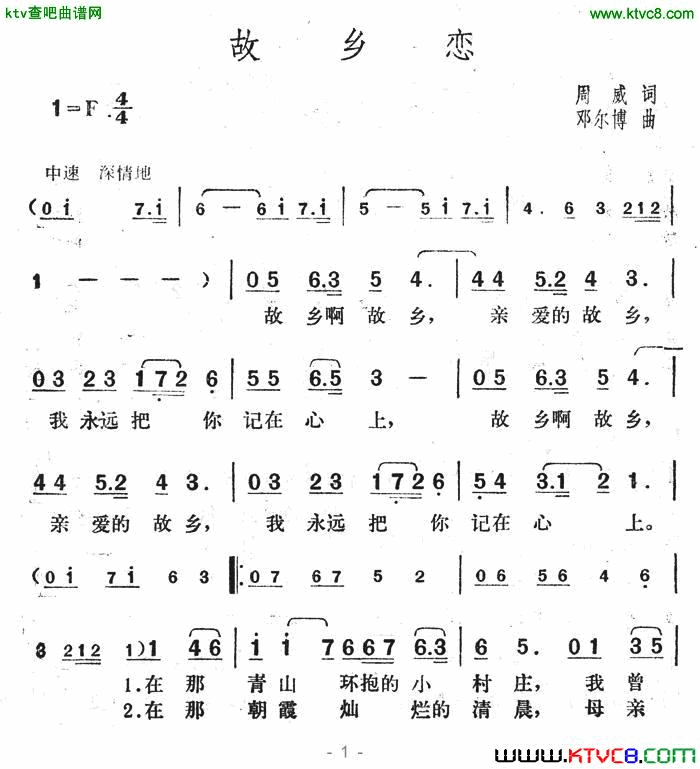 ktv查吧曲谱网
www.ktvc8.com
故乡恋
1=F 4/4
周威 词
邓尔博 曲
中速 深情地
(0i 7.i | 6 — 6i 7.i | 5 — 5i 7.i | 4. 6 3 212 |
1 — — — ) | 05 6.3 5 4. | 44 5.2 4 3. |
故 乡啊 故 乡, 亲 爱的 故 乡,
03 23 172 6 | 55 6.5 3 — | 05 6.3 5 4. |
我 永远 把 你 记在 心 上, 故 乡啊 故 乡,
44 5.2 4 3. | 03 23 172 6 | 54 3.1 2 1. |
亲 爱的 故 乡, 我 永远 把 你 记在 心 上。
(0i 7i 6 3 |: 07 67 5 2 | 06 56 4 6 |
3 212 1) 1 46 | i i 7 667 6.3 | 6 5. 01 35 |
1.在 那 青 山 环抱的 小 村 庄, 我 曾
2.在 那 朝 霞 灿 烂的 清 晨, 母 亲
- 1 -
www.KTVC8.com